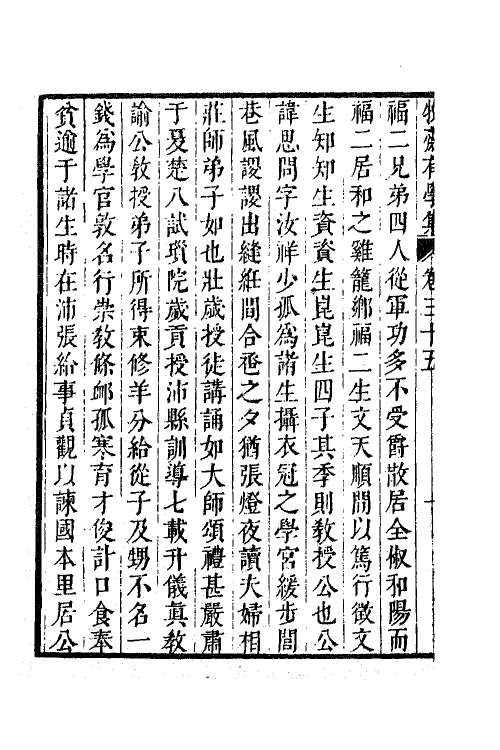 牧齋有學集 卷三十五
福二兄弟四人從軍功多不受爵散居全椒和陽而
福二居和之雞籠鄉福二生文天順間以篤行徵文
生知知生資資生崑崑生四子其季則教授公也公
諱思問字汝祥少孤為諸生攝衣冠之學宮緩步閭
巷風謖謖出縫紝間合巹之夕猶張燈夜讀夫婦相
莊師弟子如也壯歲授徒講誦如大師頌禮甚嚴肅
于夏楚八試瑣院歲貢授沛縣訓導七載升儀真教
諭公教授弟子所得束修羊分給從子及甥不名一
錢為學官敦名行崇教條邮孤寒育才俊計口食奉
貧逾于諸生時在沛張給事貞觀以諫國本里居公